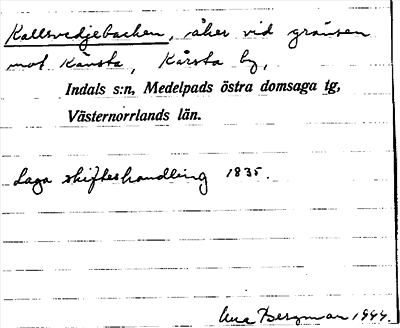 Kallsvedjebacken, åker vid gränsen
mot Kävsta, Kårsta by,
Indals s:n, Medelpads östra domsaga tg,
Västernorrlands län.
Laga skifteshandling 1835.
Bergman 1944.